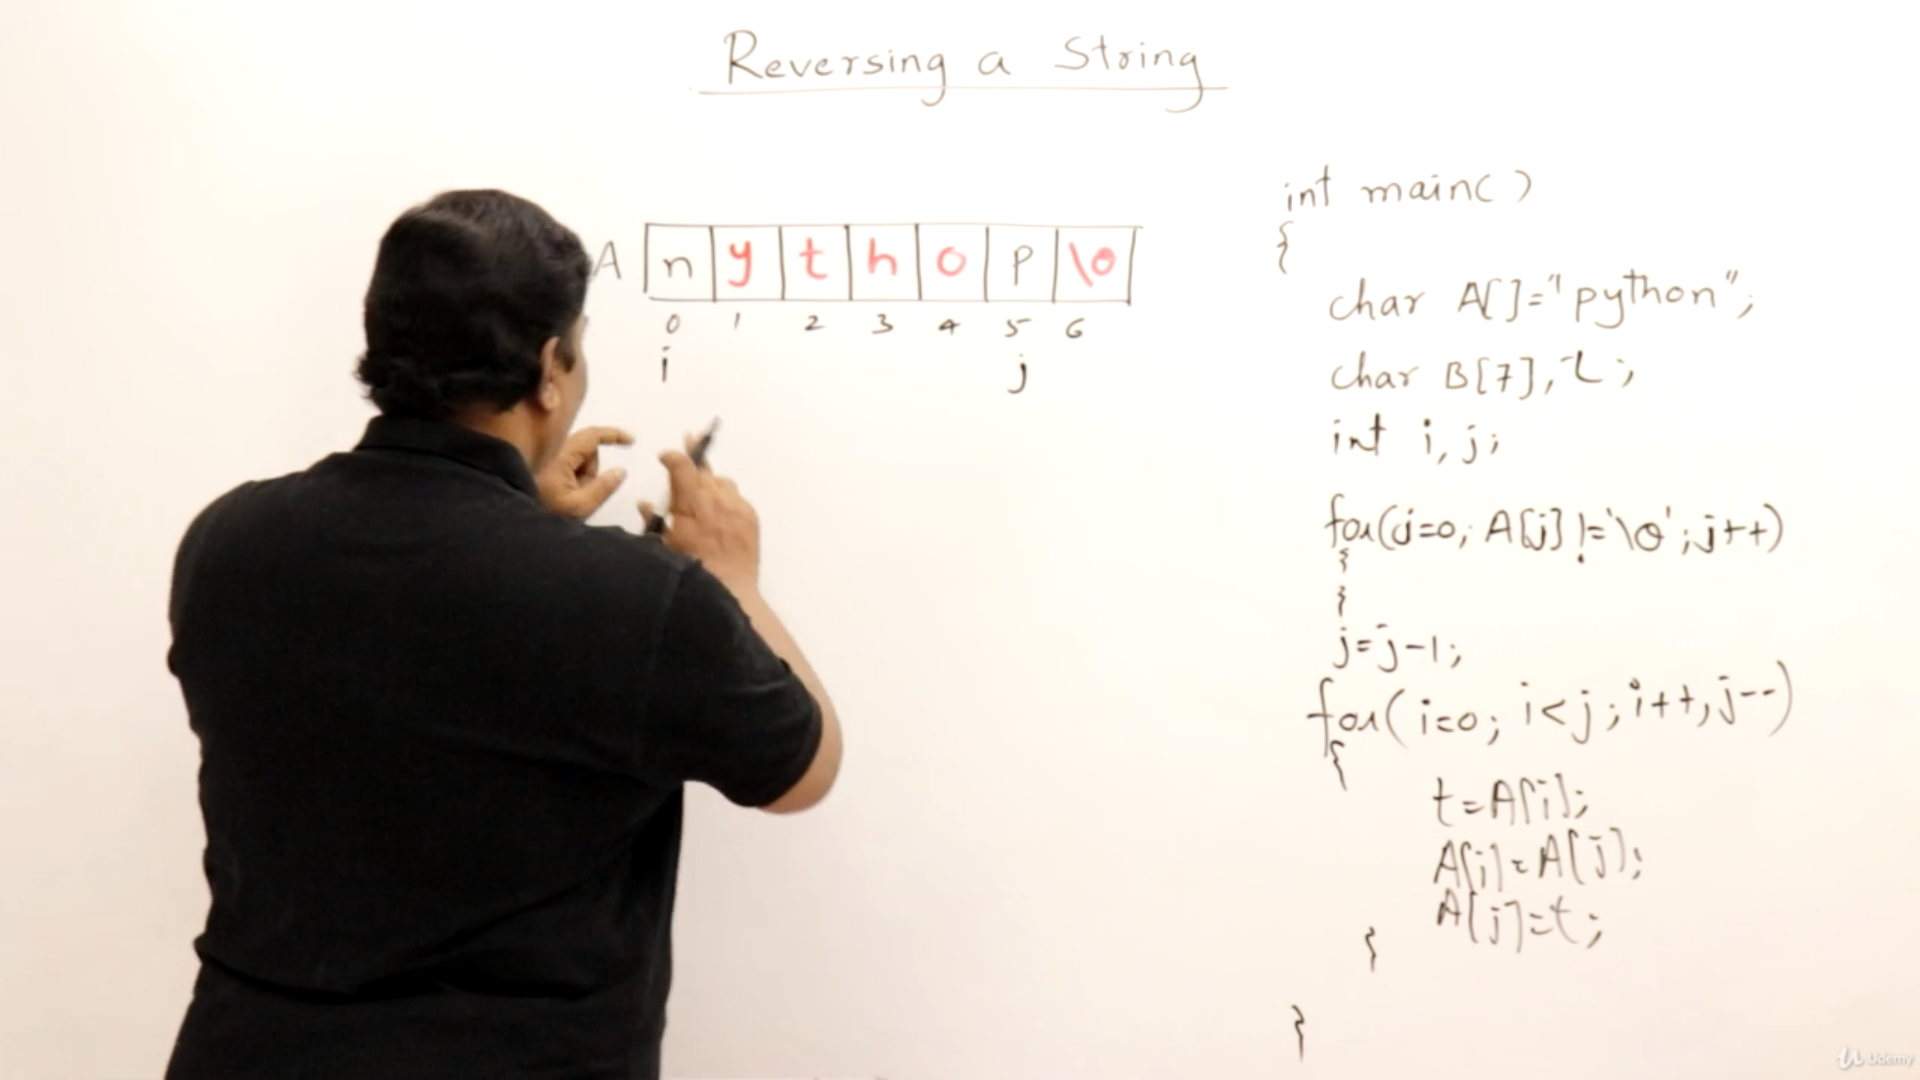 Reversing a String
A n y t h o p \0
0 1 2 3 4 5 6
i j
int main()
{
char A[]="python";
char B[7],t;
int i,j;
for(j=0; A[j]!='\0';j++)
{
}
j=j-1;
for(i=0; i<j;i++,j--)
{
t=A[i];
A[i]=A[j];
A[j]=t;
}
}
Udemy